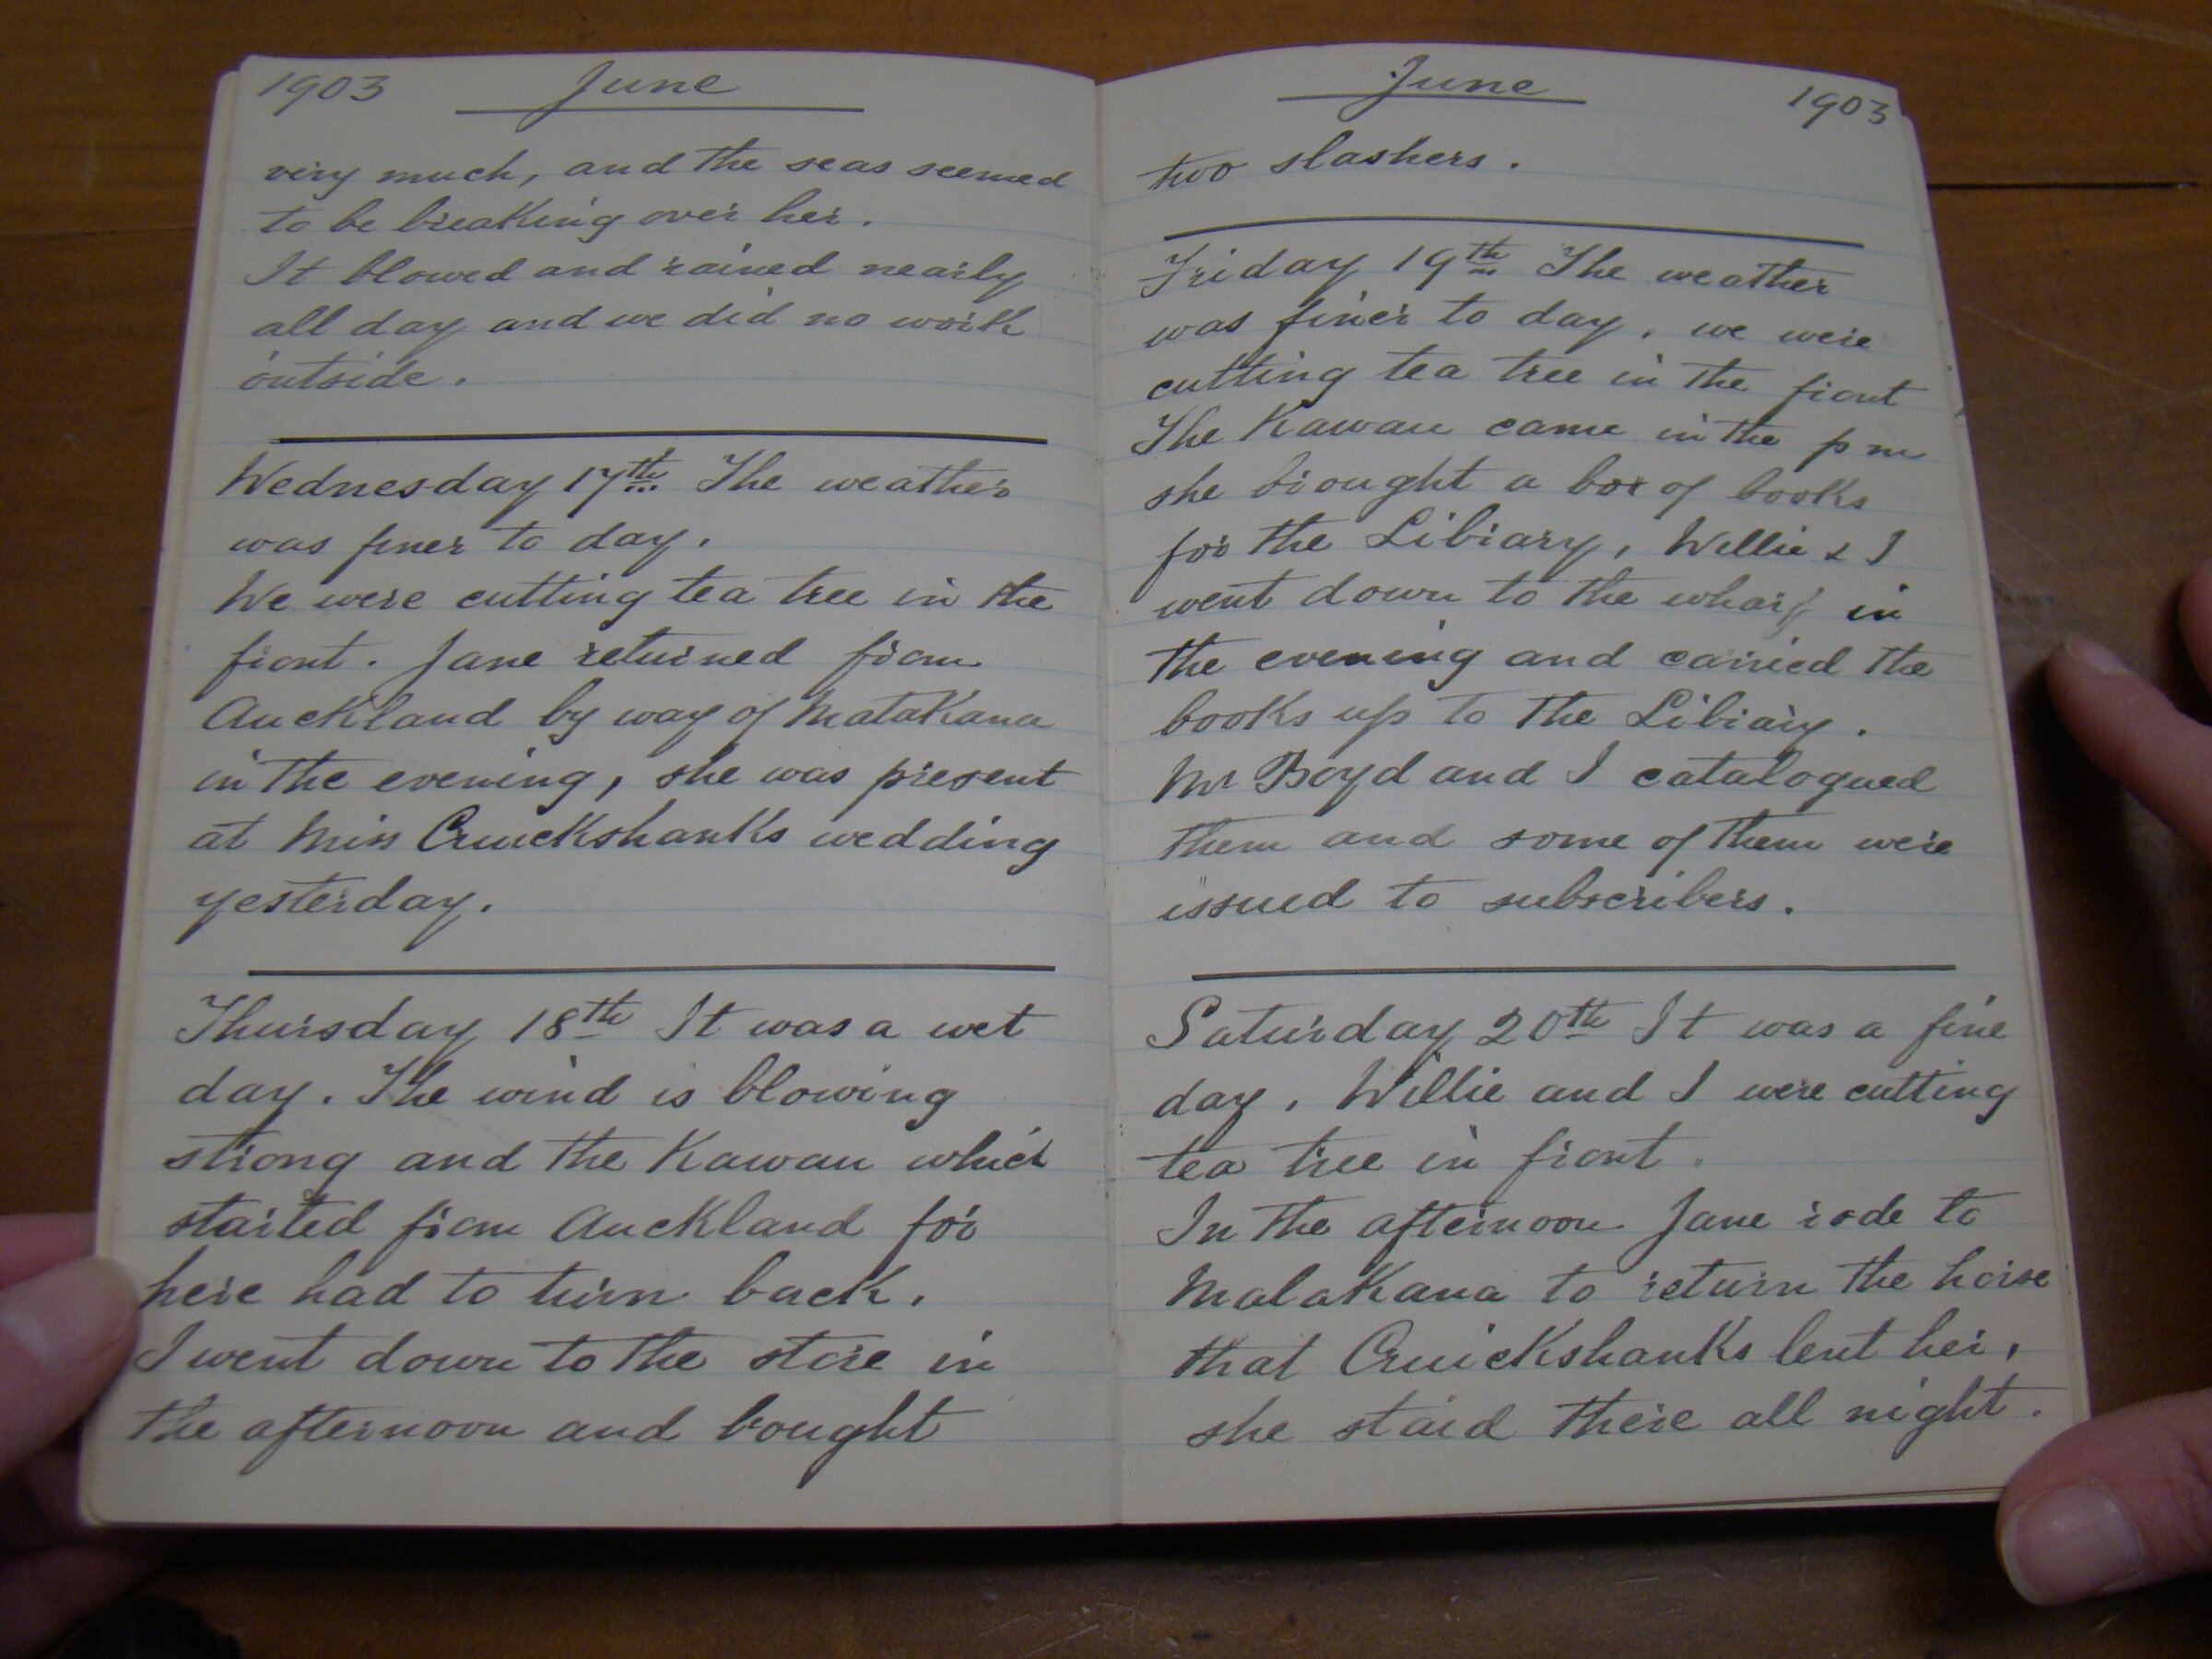 1903 June
very much, and the seas seemed
to be breaking over her.
It blowed and rained nearly
all day and we did no work
outside.
Wednesday 17th The weather
was finer to day.
We were cutting tea tree in the
front. Jane returned from
Auckland by way of Matakana
in the evening, she was present
at Miss Cruickshanks wedding
yesterday.
Thursday 18th It was a wet
day. The wind is blowing
strong and the Kawau which
started from Auckland for
here had to turn back.
I went down to the store in
the afternoon and bought
June 1903
two slashers.
Friday 19th The weather
was finer to day, we were
cutting tea tree in the front
The Kawau came in the p m
she brought a box of books
for the Library, Willie & I
went down to the wharf in
the evening and carried the
books up to the Library.
Mr Boyd and I catalogued
them and some of them were
issued to subscribers.
Saturday 20th It was a fine
day, Willie and I were cutting
tea tree in front.
In the afternoon Jane rode to
Matakana to return the horse
that Cruickshanks lent her,
she staid there all night.